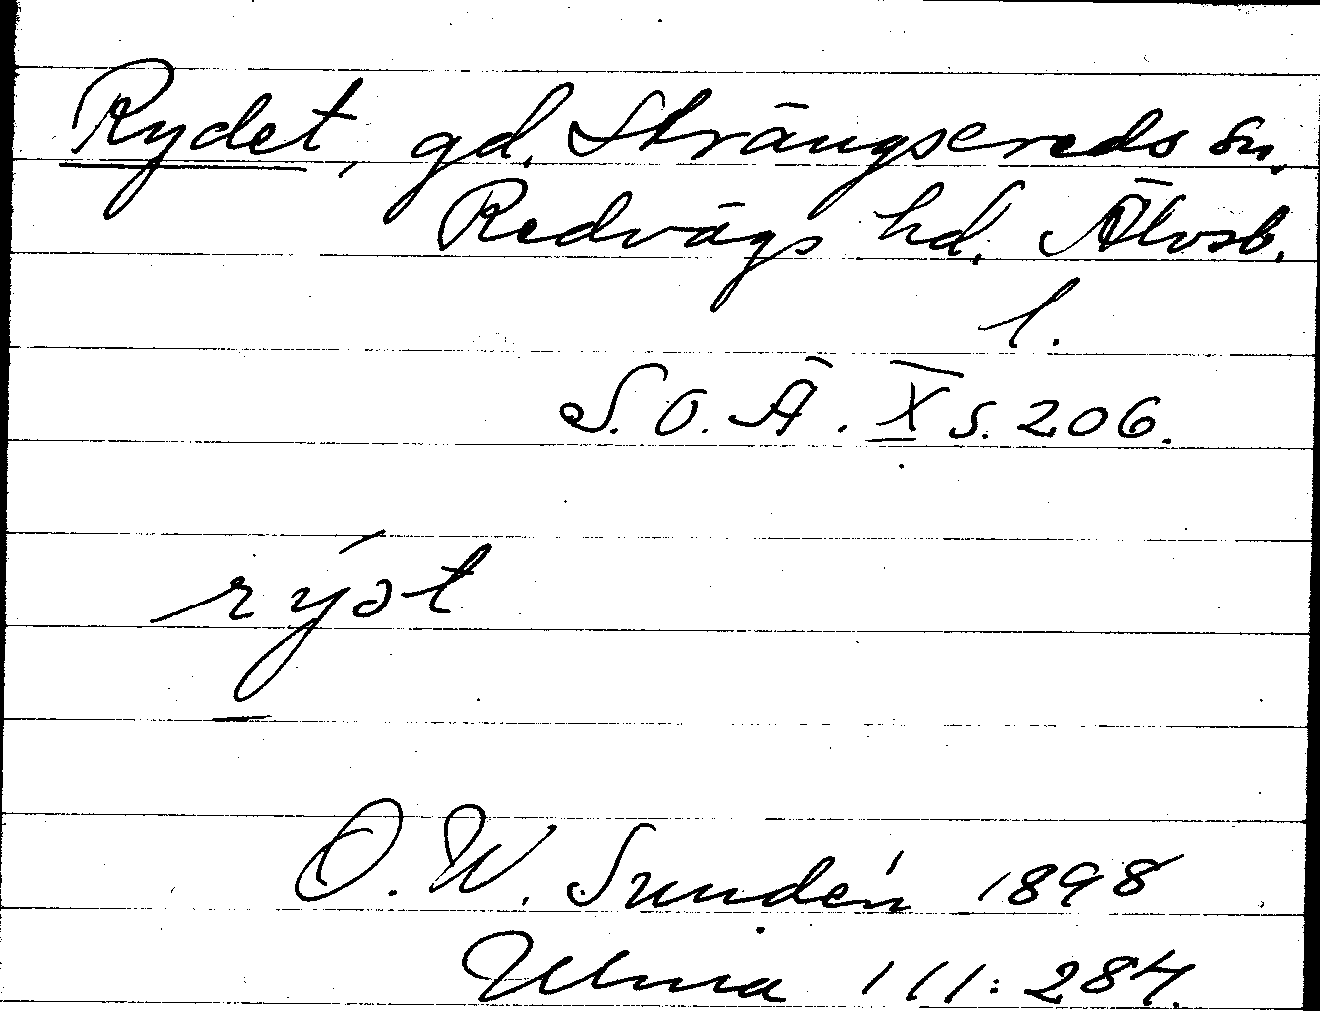 Rydet, gd. Strängsereds sn.
Redvägs hd. Älvsb.
l.
S. O. Ä. X s. 206.
rýət
O. W. Sundén 1898
Ulma 111:284.